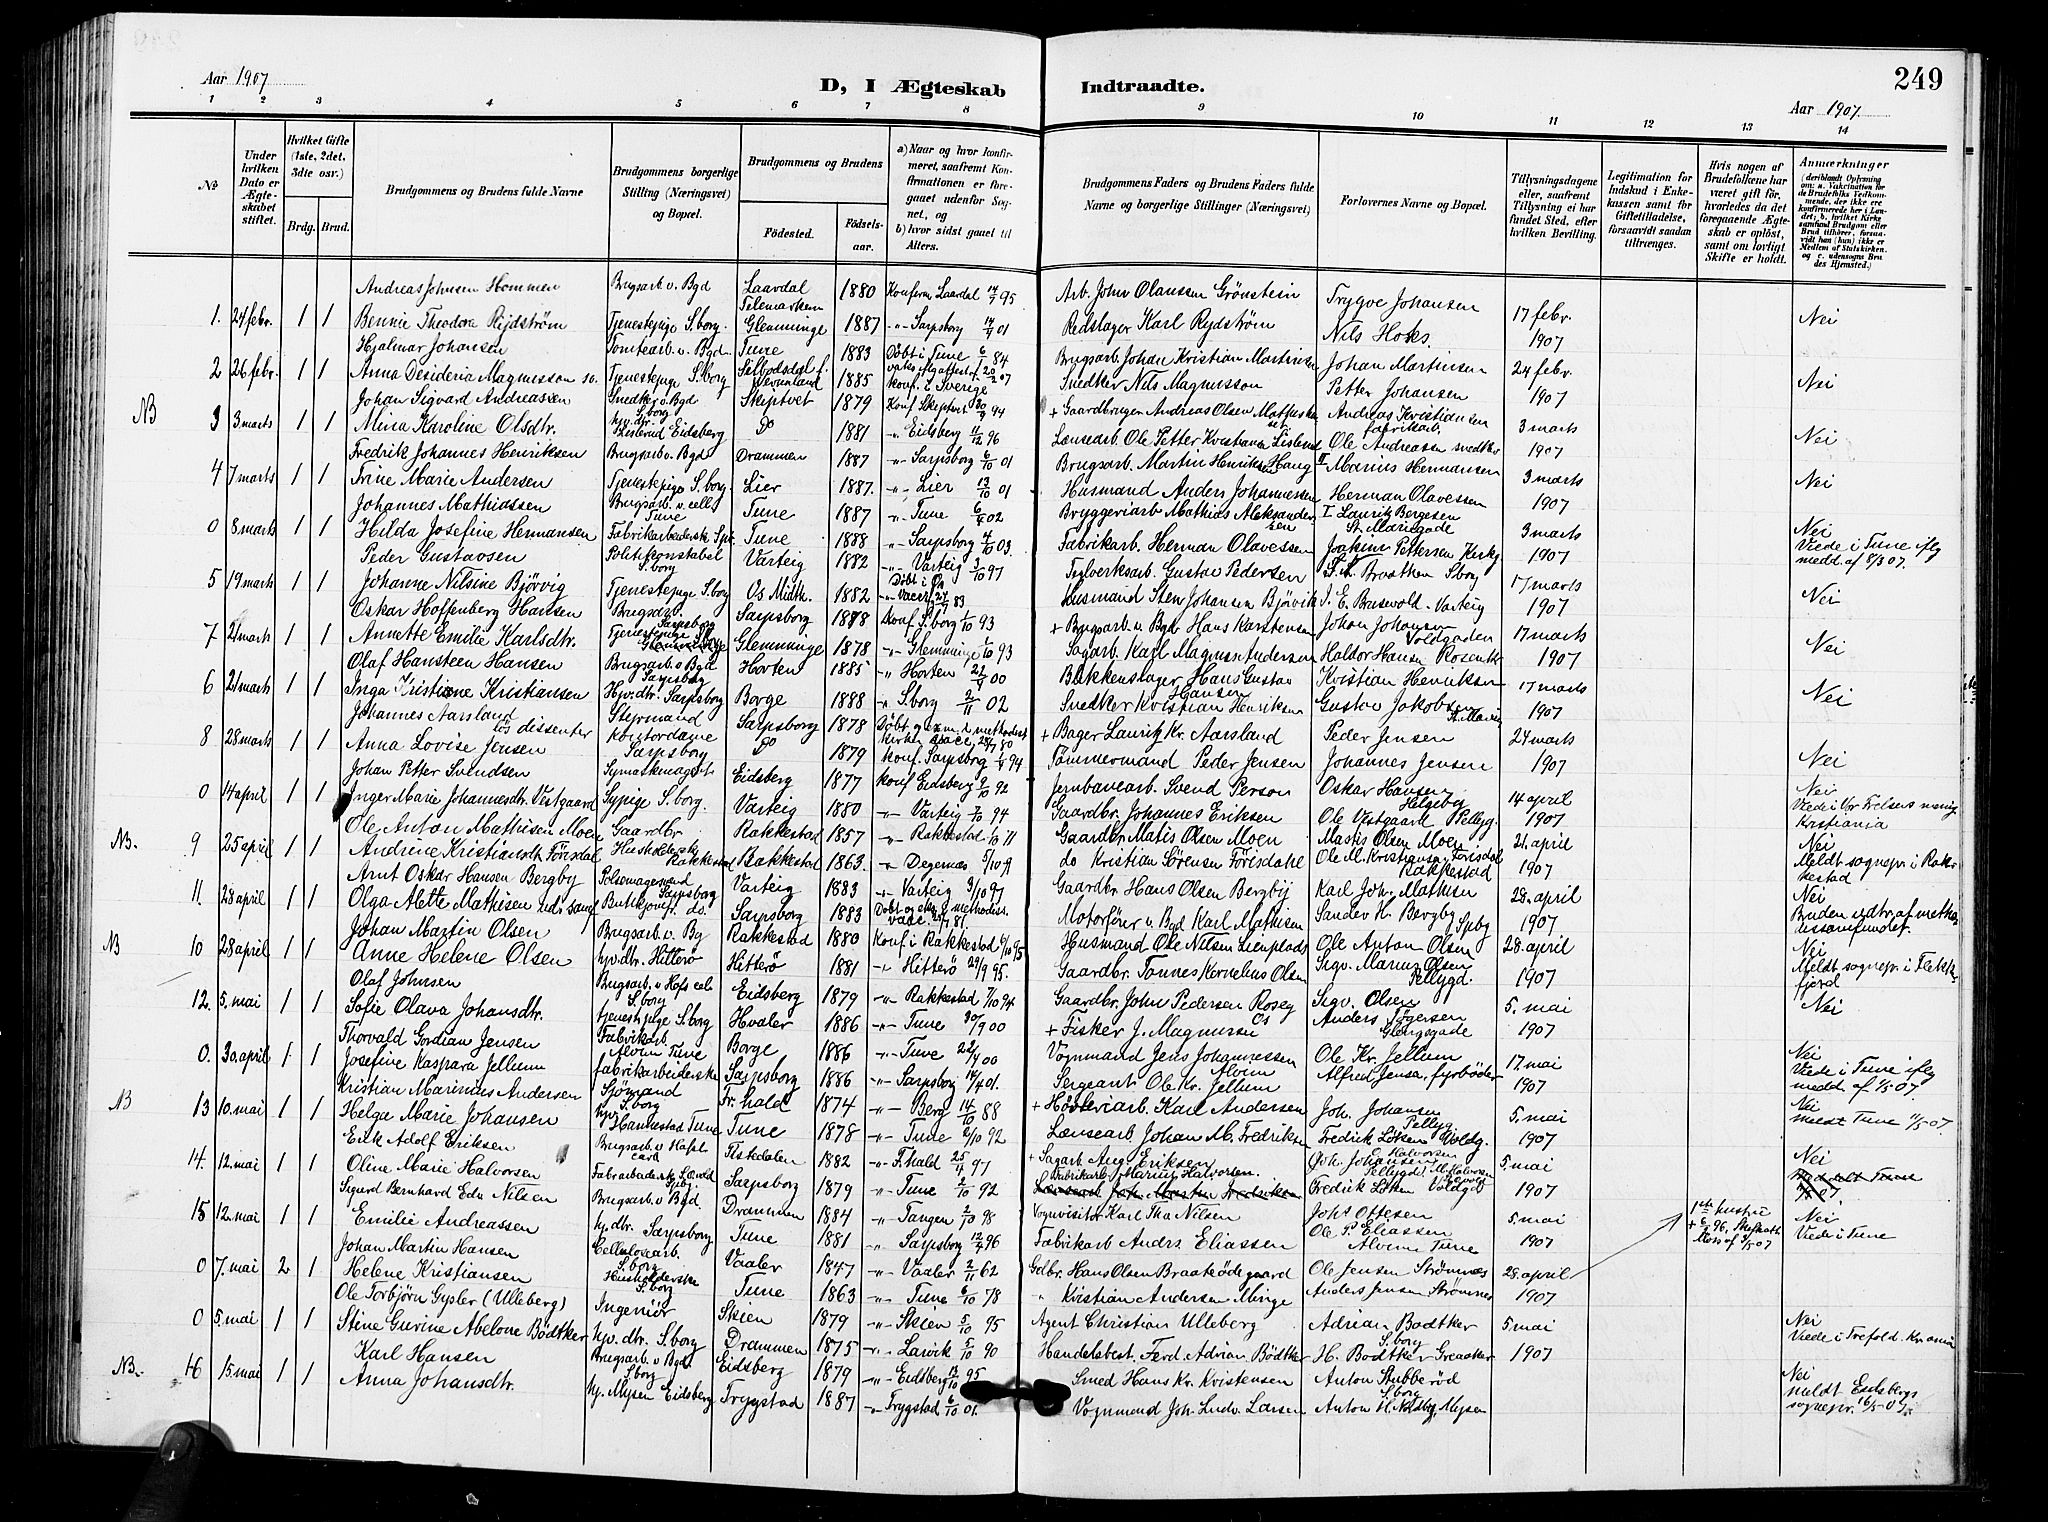 249
Aar 1907
D, I Ægteskab Indtraadte.
Aar 1907.
1 2 3 4 5 6 7 8 9 10 11 12 13 14
No
Under hvilken Dato er Ægteskabet stiftet.
Hvilket Gifte (1ste, 2det, 3die osv.)
Brdg. Brud.
Brudgommens og Brudens fulde Navne
Brudgommens borgerlige Stilling (Næringsvei) og Bopæl.
Brudgommens og Brudens
Fødested. Fødselsaar.
a) Naar og hvor konfirmeret, saafremt Konfirmationen er foregaaet udenfor Sognet, og
b) hvor sidst gaaet til Alters.
Brudgommens Faders og Brudens Faders fulde Navne og borgerlige Stillinger (Næringsvei)
Forlovernes Navne og Bopæl.
Tillysningsdagene eller, saafremt Tillysning ei har fundet Sted, efter hvilken Bevilling.
Legitimation for Indskud i Enkekassen samt for Giftetilladelse, forsaavidt saadan tiltrænges.
Hvis nogen af Brudefolkene har været gift før, hvorledes da det foregaaende Ægteskab er opløst, samt om lovligt Skifte er holdt.
Anmærkninger (deriblandt Oplysning om: a. Vakcination for de Brudefolks Vedkommende, der ikke ere konfirmerede her i Landet; b. hvilket Kirkesamfund Brudgom eller Brud tilhører, forsaavidt han (hun) ikke er Medlem af Statskirken, og c. udensogns Brudes Hjemsted.)
Andreas Johnsen Hommen Brugsarb. v. Bgd Laardal Telemarken 1880 Konferm. Laardal 14/7 95 Arb. John Olanssen Grönstein Trygve Johansen 17 febr.
1. 24 febr. 1 1 Bennie Theodora Rijdström Tjenestepige S.borg. Glemminge 1887 -"- Sarpsborg 14/4 01 Redslager Karl Rydström Nils Hoks. 1907 Nei
Hjalmar Johansen Tomtearb. v. Bgd Tune 1883 Döbt i Tune 6/1 84 Brugsarb. Johan Kristian Martinsen Johan Martinsen 24 febr.
2 26 febr. 1 1 Anna Desideria Magnusson Tjenestepige S.borg 1885 konf. i Sverige Snedker Nils Magnusson Petter Johansen 1907 Nei
Johan Sigvard Andreassen Snedker v. Bgd Skiptvet 1879 Konf Skiptvet 94 + Gaardbruger Andreas Olsen Andreas Kristiansen fabrikarb. 3 marts
NB 3 3. marts 1 1 Mina Karoline Olsdtr. hjv. dtr. Lislerud Eidsberg Do 1881 -"- Eidsberg 11/12 96 Lænsearb. Ole Petter Kristiansen Lislerud Ole Andreassen snedker 1907 Nei
Fredrik Johannes Henriksen Brugsarb v. Bgd Drammen 1887 -"- Sarpsborg 6/10 01 Brugsarb. Martin Henriksen Haug Marius Hermansen 3 marts
4 7 marts 1 1 Trine Marie Andersen Tjenestepige S.borg. Lier 1887. -"- Lier 13/10 01 Husmand Anders Johannessen Herman Olavessen 1907 Nei
Johannes Mathiassen Brugsarb. v. cell. Tune Tune 1887 -"- Tune 6/4 02 Bryggeriarb Mathias Aleksandersen Lauritz Bergesen St. Mariegade 3 marts
0 8 marts 1 1 Hilda Josefine Hermansen Fabrikarbeiderske Tune 1888 -"- Sarpsborg 4/10 03. Fabrikarb. Herman Olavessen Joakim Pettersen Kirkg 1907 Nei Viede i Tune iflg medd. af 8/3 07.
Peder Gustavsen Politikonstabel S.borg Varteig 1882 -"- Varteig 3/10 97 Gustav Pedersen Braathen Sborg 17 marts
5 19 marts 1 1 Johanne Nilsine Bjørvig Tjenestepige S.borg Os Midth. 1882 Döbt i Os Husmand Sten Johansen Bjørvik J. E. Brusevold Varteig 1907 Nei
Oskar Hoffenberg Hansen Brugsarb. Sarpsborg Sarpsborg 1878 konf S.borg 1/10 93 + Brugsarb. v. Bgd Hans Karstensen Johan Johansen Voldgaden 17 marts
7 21 marts 1 1 Annette Emilie Karlsdtr. Tjenestepige Glemminge 1878 -"- Glemminge 6/10 93 Sagarb. Karl Magnus Andersen Haldor Hansen 1907 Nei
Olaf Hansteen Hansen Brugsarb. v Bgd Sarpsborg Horten 1885 -"- Horten 00 Blikkenslager Hans Gustav Hansen Kristian Henriksen 17 marts
6 21 marts 1 1 Inga Kristiane Kristiansen Hjv. dtr. Sarpsborg Borge 1888 -"- S.borg 2/11 02 Snedker Kristian Henriksen Gustav Jakobsen 1907 Nei
Johannes Aarsland lös dissenter Styrmand Sarpsborg 1878 Döbt og + Bager Lauritz Kr. Aarsland Peder Jensen 24 marts
8 28 marts 1 1 Anna Lovise Jensen Kontordame Sarpsborg Do 1879 konf. Sarpsborg 94 Tömmermand Peder Jensen Johannes Jensen 1907 Nei
Johan Petter Svendsen Eidsberg 1877 konf Eidsberg 2/10 92 Jernbanearb. Svend Person Oskar Hansen Helgeby 14 april
0 14 april 1 1 Inger Marie Johannesdtr. Vestgaard Sypige S.borg. Varteig 1880 -"- Varteig 7/10 94 Gaardbr. Johannes Eriksen Ole Vestgaard Pellyg. 1907 Nei Viede i Vor Frelsers menig Kristiania
Ole Anton Mathisen Moen Gaardbr. Rakkestad 1857 -"- Rakkestad 1/10 71 Gaardbr. Matis Olsen Moen Martis Olsen Moen 21. april
NB. 9 25 april 1 1 Andrine Kristiansdtr. Förisdal Husholderske Rakkestad Rakkestad 1863. -"- Degernæs do Kristian Sörensen Förisdahl Ole M. Kristiansen Förisdal Rakkestad 1907 Nei Meldt sognepr. i Rakkestad
Arnt Oskar Hansen Bergby Pölsemagersvend Sarpsborg Varteig 1883 -"- Varteig 3/10 97 Gaardbr Hans Olsen Bergbij Karl Joh. Mathisen 28. april
11. 28 april 1 1 Olga Alette Mathisen Butikjomf. do. Sarpsborg 1883 Döbt Motorförer v. Bgd Karl Mathisen Sander H. Bergby Spbg 1907 Nei Bruden udtr. af methodissamfundet.
Johan Martin Olsen Brugsarb. v. Bg Rakkestad 1880 Konf i Rakkestad 6/10 95 Husmand Ole Nilsen Ole Anton Olsen 28. april
NB 10 28 april 1 1 Anne Helene Olsen hjv. dtr. Hitterö Hitterö 1881 -"- Hitterö 29/9 95. Gaardbr. Tönnes Kornelius Olsen Sigv. Marius Olsen Pellygd. 1907 Nei Meldt sognepr. i Flekkefjord
Olaf Johnsen Brugsarb. v Hafs. S.borg Eidsberg 1879 -"- Rakkestad 7/10 94 Gaardbr. John Pedersen Roseg Sigv. Olsen 5. mai
12. 5. mai 1 1 Sofie Olava Johansdtr. tjenestpige S.borg Hvaler 1886 -"- Tune 30/9 00 + Fisker J. Magnussen Anders Jörgersen Glengsgade 1907 Nei
Thorvald Gordian Jensen Fabrikarb. Alvim Tune Borge 1886 -"- Tune 22/4 00 Vognmand Jens Johannessen Alvim Ole Kr. Jellum 17. mai
0. 30. april 1. 1 Josefine Kaspara Jellum fabrikarbeiderske Sarpsborg 1886 -"- Sarpsborg 14/4 01. Sergeant Ole Kr. Jellum Alfred Jensen, fyrböder 1907 Nei Viede i Tune iflg medd. af 1/5 07.
Kristian Marinius Andersen Sjömand S.borg Fr. hald 1874 -"- Berg 14/10 88 + Høvleriarb. Karl Andersen Joh. Johansen Pellyg 5. mai
NB 13 10. mai 1 1 Helga Marie Johansen hjv. Hannestad Tune Tune 1878 -"- Tune 2/10 92 Lænsearb. Johan M. Fredriksen Fredrik Løken Voldg. 1907 Nei meldt Tune 11/5 07.
Erik Adolf Eriksen Brugsarb. v Hafsl. Tistedalen 1882 -"- F.hald 25/4 97 + Sagarb. Aug. Eriksen Joh. Johansen 5. mai
14. 12. mai 1 1 Oline Marie Halvorsen Sarpsborg 1879 -"- Tune 2/10 92 Fabrikarb. Marius Halvorsen. Fredrik Løken Voldg. 1907 Nei
Sigurd Bernhard Edv Nilsen Brugsarb. v. Bgd. Drammen 1884 -"- Tangen 2/10 98 Vognvisitör Karl Nilsen Johs Ottesen 5. mai
15 12. mai 1 1 Emilie Andreassen hj. dtr. Sarpsborg Tune 1881 -"- Sarpsborg 12/4 96 Fabrikarb Andrs. Eliassen Ole P. Eliassen Alvim Tune 1907 Nei
Johan Martin Hansen Cellulosearb. S.borg Vaaler 1847 -"- Vaaler 2/11 62 Gdbr. Hans Olsen Braatødegaard Ole Jensen Strömnæs 28. april
0 7. mai 2 1 Helene Kristiansen Husholderske S.borg Tune 1863 -"- Tune 6/10 78 " Kristian Andersen Minge Anders Jensen Strömnes 1907 1ste hustru + 6/6 96. Skifteatt. Moss af 3/5 07 Viede i Tune
Ole Torbjörn Gysler (Ulleberg) Ingeniör Skien 1879 -"- Skien 5/10 95 Agent Christian Ulleberg Adrian Bödtker S.borg 5. mai
0 5. mai 1 1 Stine Gurine Abelone Bödtker hjv. dtr. S.borg Drammen 1875 -"- Larvik 5/10 90 Handelsbest. Ferd. Adrian Bödtker H. Bödtker Greaaker 1907 Nei Viede i Trefold. Kr.ania
Karl Hansen Brugsarb. v Bgd S.borg Eidsberg 1879 -"- Eidsberg 13/10 95 Smed Hans Kr. Kristensen Anton Stubberöd S.borg
NB. 16 15. mai 1 1 Anna Johansdtr. hj. Mysen Eidsberg Trygstad 1887 -"- Trygstad 6/10 01. Vognmand Joh. Ludv. Larsen Anton H. Mysen Nei meldt Eidsbergs sognepr. 16/5 07.